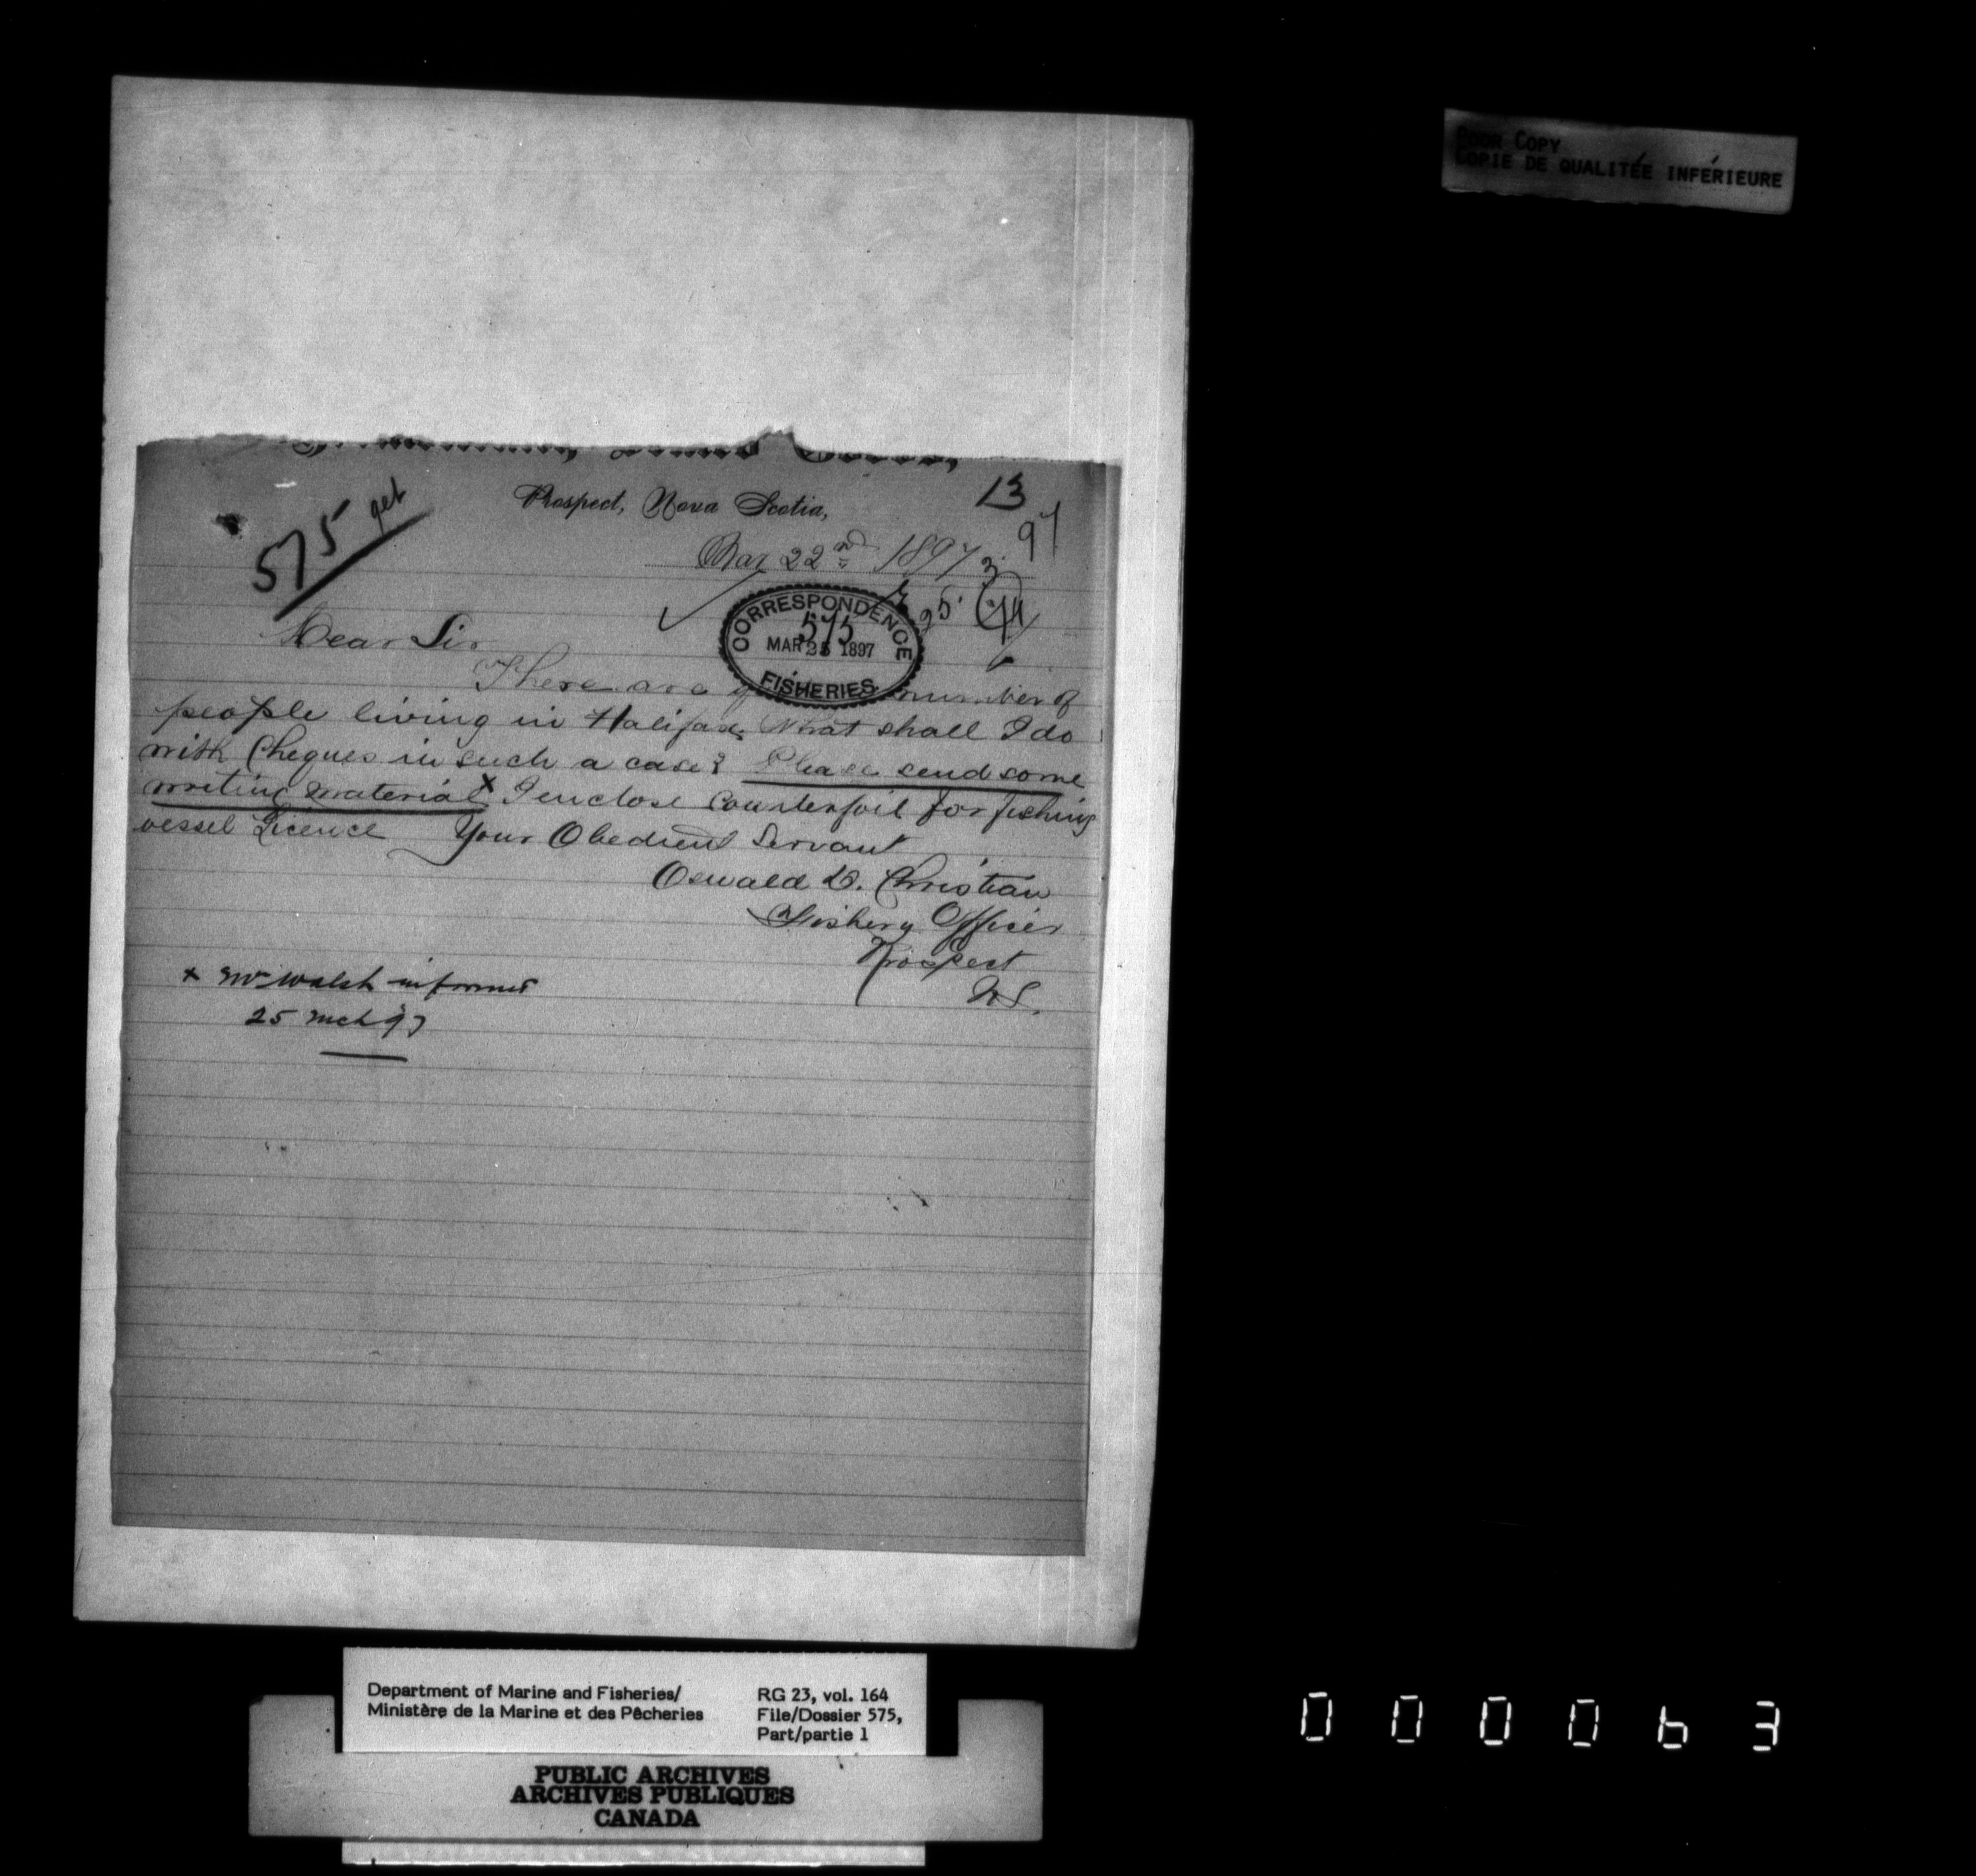 POOR COPY
COPIE DE QUALITÉE INFÉRIEURE
13
Prospect, Nova Scotia,
575
97
Mar 22nd 1897
3
25
CORRESPONDENCE
575
MAR 25 1897
FISHERIES
Dear Sir
There are a number of
people living in Halifax, What shall I do
with Cheques in such a case? Please send some
writing material x I enclose Counterfoil for fishing
vessel Licence Your Obedient Servant
Oswald D. Christian
Fishery Officer
Prospect
NS.
x Mr Walsh informed
25 Mch 97
Department of Marine and Fisheries/
Ministère de la Marine et des Pêcheries
RG 23, vol. 164
File/Dossier 575,
Part/partie 1
PUBLIC ARCHIVES
ARCHIVES PUBLIQUES
CANADA
000063